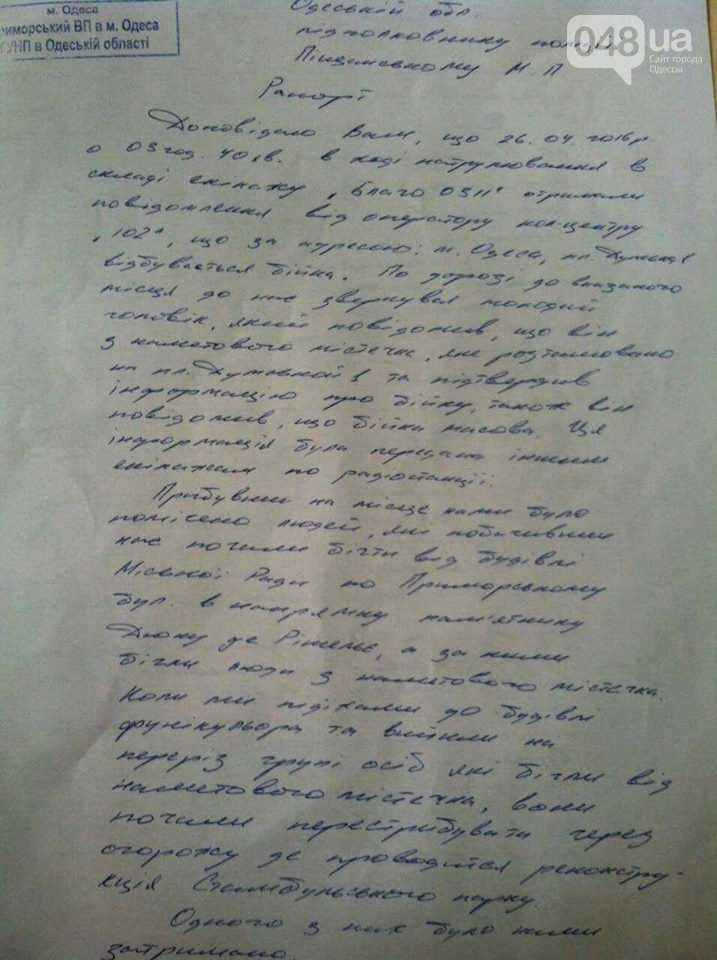 м. Одеса
риморський ВП в м. Одеса
ГУНП в Одеській області
048 ua
Сайт города
Одессы
Одеській обл.
підполковнику поліції
Піщемському М. П
Рапорт
Доповідаю Вам, що 26.04.2016р.
о 03 год. 40 хв. в ході патрулювання в
складі екіпажу „Благо 0311" отримали
повідомлення від оператору кол-центру
„102", що за адресою: м. Одеса, пл. Думська 1
відбувається бійка. По дорозі до вказаного
місця до нас звернувся молодий
чоловік, який повідомив, що він
з наметового містечка, яке розташовано
на пл. Думській 1 та підтвердив
інформацію про бійку, також він
повідомив, що бійка масова. Ця
інформація була передана іншим
екіпажам по радіостанції.
Прибувши на місце нами було
помічено людей, які побачивши
нас почали бігти від будівлі
Міської Ради по Приморському
бул. в напрямку пам'ятнику
Дюку де Рішельє, а за ними
бігли люди з наметового містечка.
Коли ми підїхали до будівлі
фунікульора та вийшли на
переріз групі осіб які бігли від
наметового містечка, вони
почали перестрибувати через
огорожу де проводится реконстру-
кція Стамбульського парку.
Одного з них було нами
затримано.